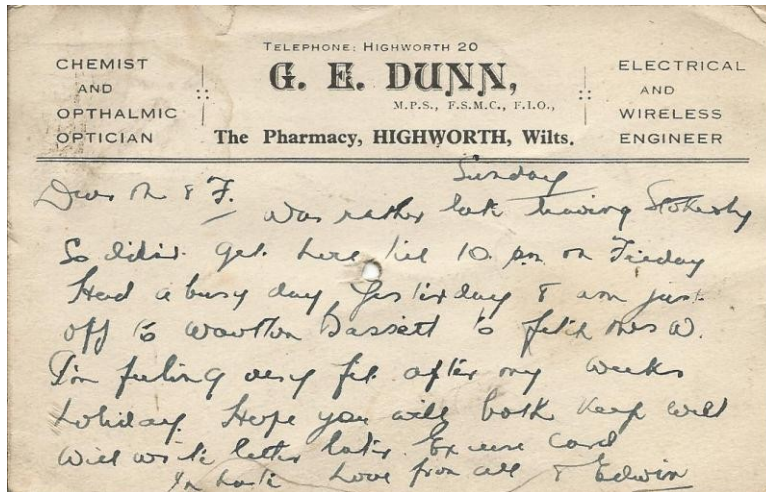 TELEPHONE: HIGHWORTH 20
CHEMIST
AND
OPTHALMIC
OPTICIAN
G. E. DUNN,
M.P.S., F.S.M.C., F.I.O.,
The Pharmacy, HIGHWORTH, Wilts.
ELECTRICAL
AND
WIRELESS
ENGINEER
Sunday
Dear M & F.
Was rather late leaving Stokesby
So didn't get here till 10 pm on Friday
Had a busy day yesterday & am just
off to Wootton Bassett to fetch Mrs W.
I'm feeling very fit after my weeks
holiday. Hope you will both keep well
Will write letter later Excuse card
In haste Love from all & Edwin